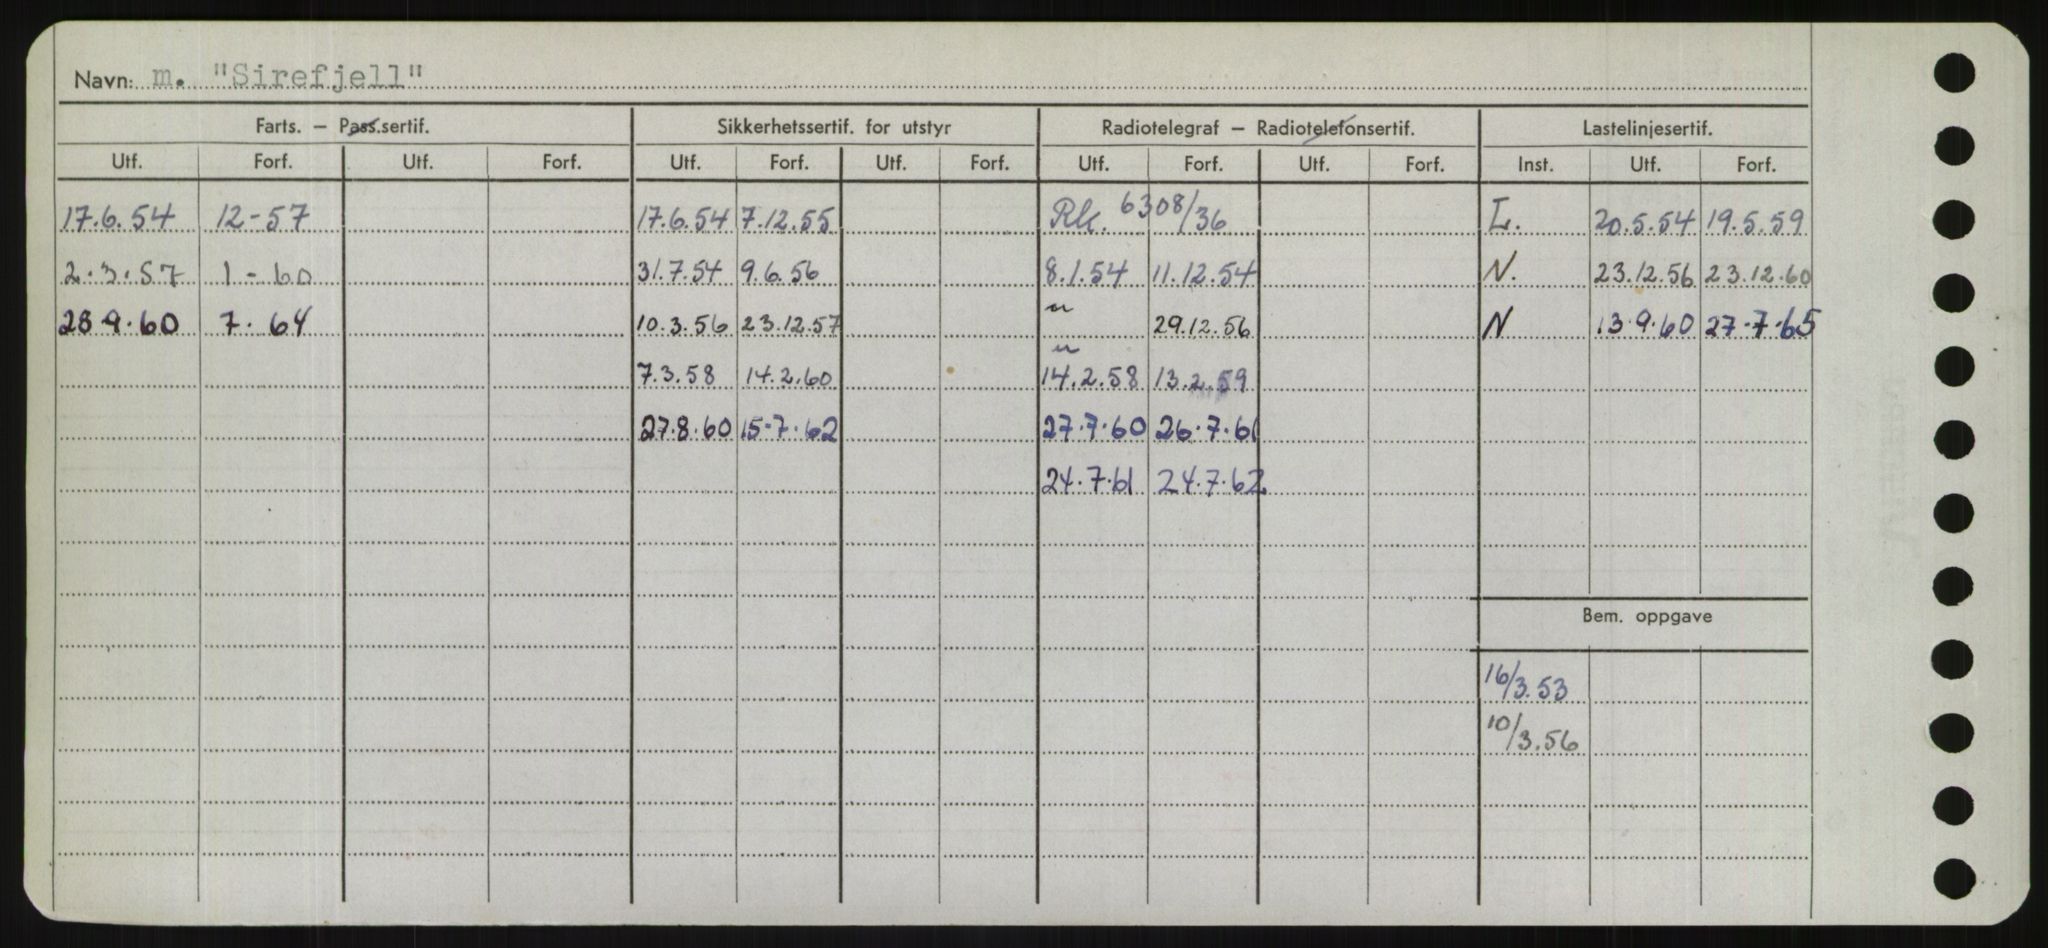 Navn: m. "Sirefjell"
Farts. – Pass.sertif. Sikkerhetssertif. for utstyr Radiotelegraf – Radiotelefonsertif. Lastelinjesertif.
Utf. Forf. Utf. Forf. Utf. Forf. Utf. Forf. Utf. Forf. Utf. Forf. Inst. Utf. Forf.
17.6.54 12-57 17.6.54 7.12.55 Rk. 6308/36 L. 20.5.54 19.5.59
2.3.57 1-60 31.7.54 9.6.56 8.1.54 11.12.54 N. 23.12.56 23.12.60
28.9.60 7.64 10.3.56 23.12.57 29.12.56 N 13.9.60 27.7.65
7.3.58 14.2.60 14.2.58 13.2.59
27.8.60 15.7.62 27.7.60 26.7.61
24.7.61 24.7.62
Bem. oppgave
16/3.53
10/3.56